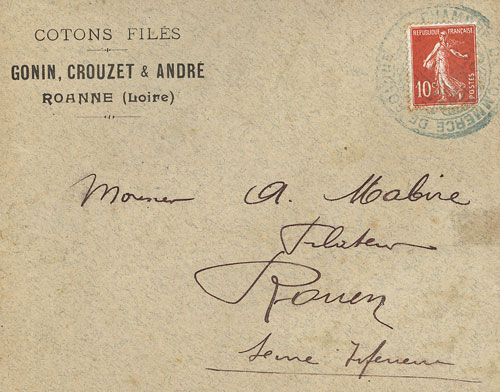 COTONS FILÉS
GONIN, CROUZET & ANDRÉ
ROANNE (Loire)
REPUBLIQUE FRANÇAISE
10c
POSTES
CHAM
MMERCE DE ROANNE
Monsieur A. Mabire
Filateur
Rouen
Seine Inférieure